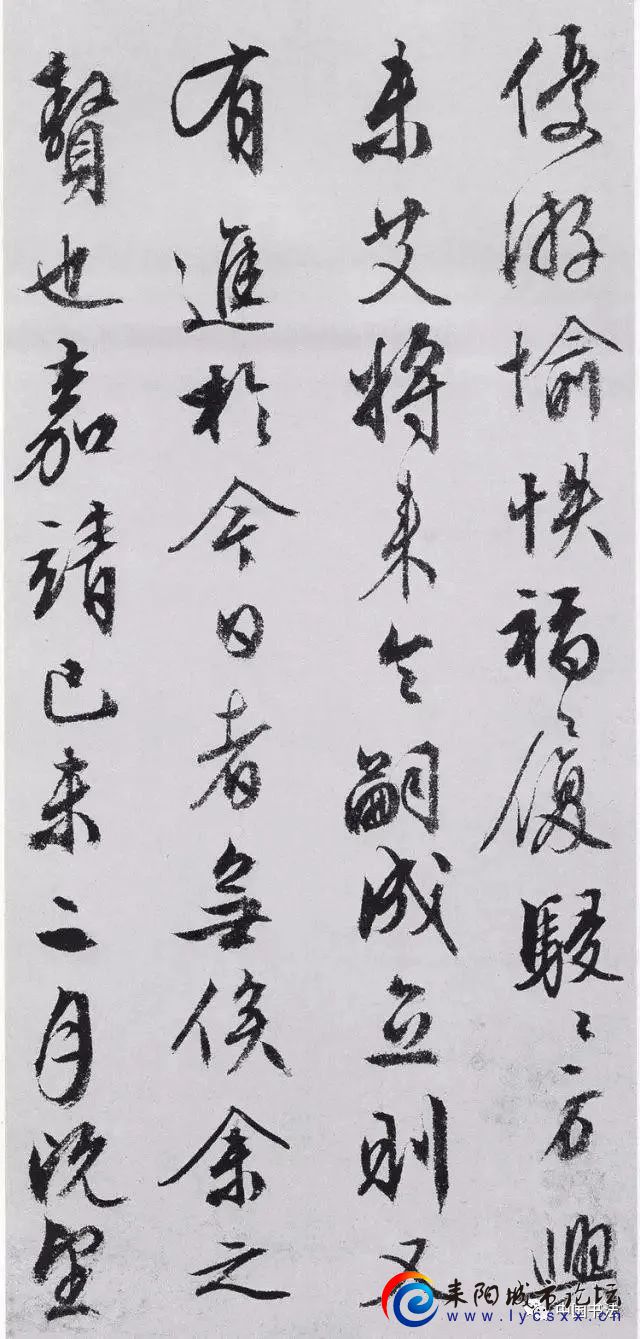 優游愉快福履駸〻方興
未艾將来令嗣成立則又
有進於今日者無俟余之
贅也嘉靖己未二月既望
耒阳城市论坛
www.lycsxx.cn
中国书法